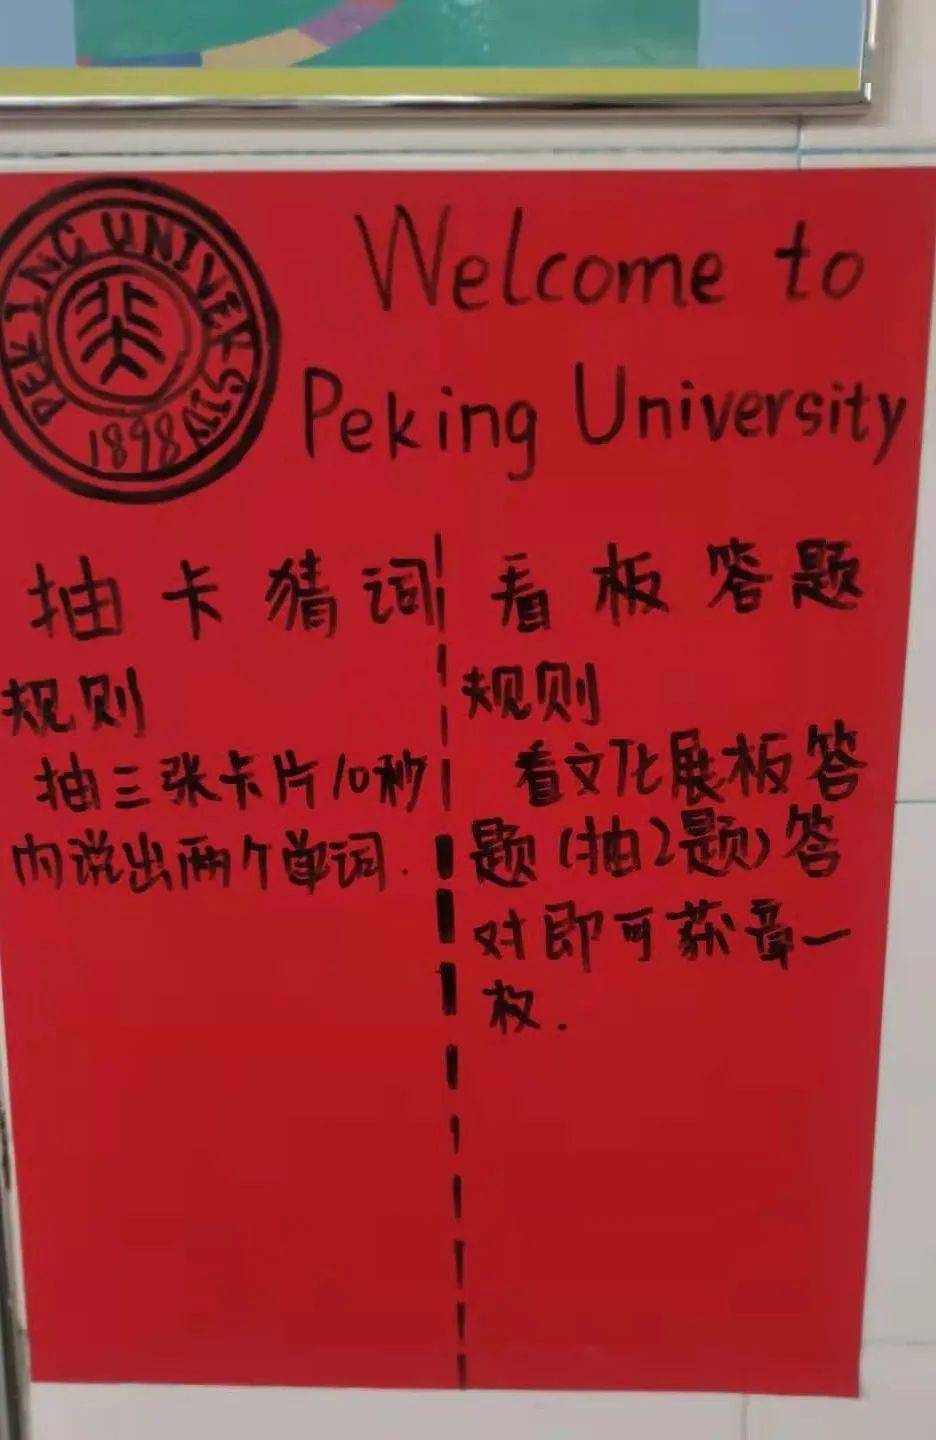 PEKING UNIVERSITY
1898
Welcome to
Peking University
抽卡猜词
规则
抽三张卡片10秒
内说出两个单词.
看板答题
规则
看文化展板答
题(抽2题)答
对即可获章一
枚.